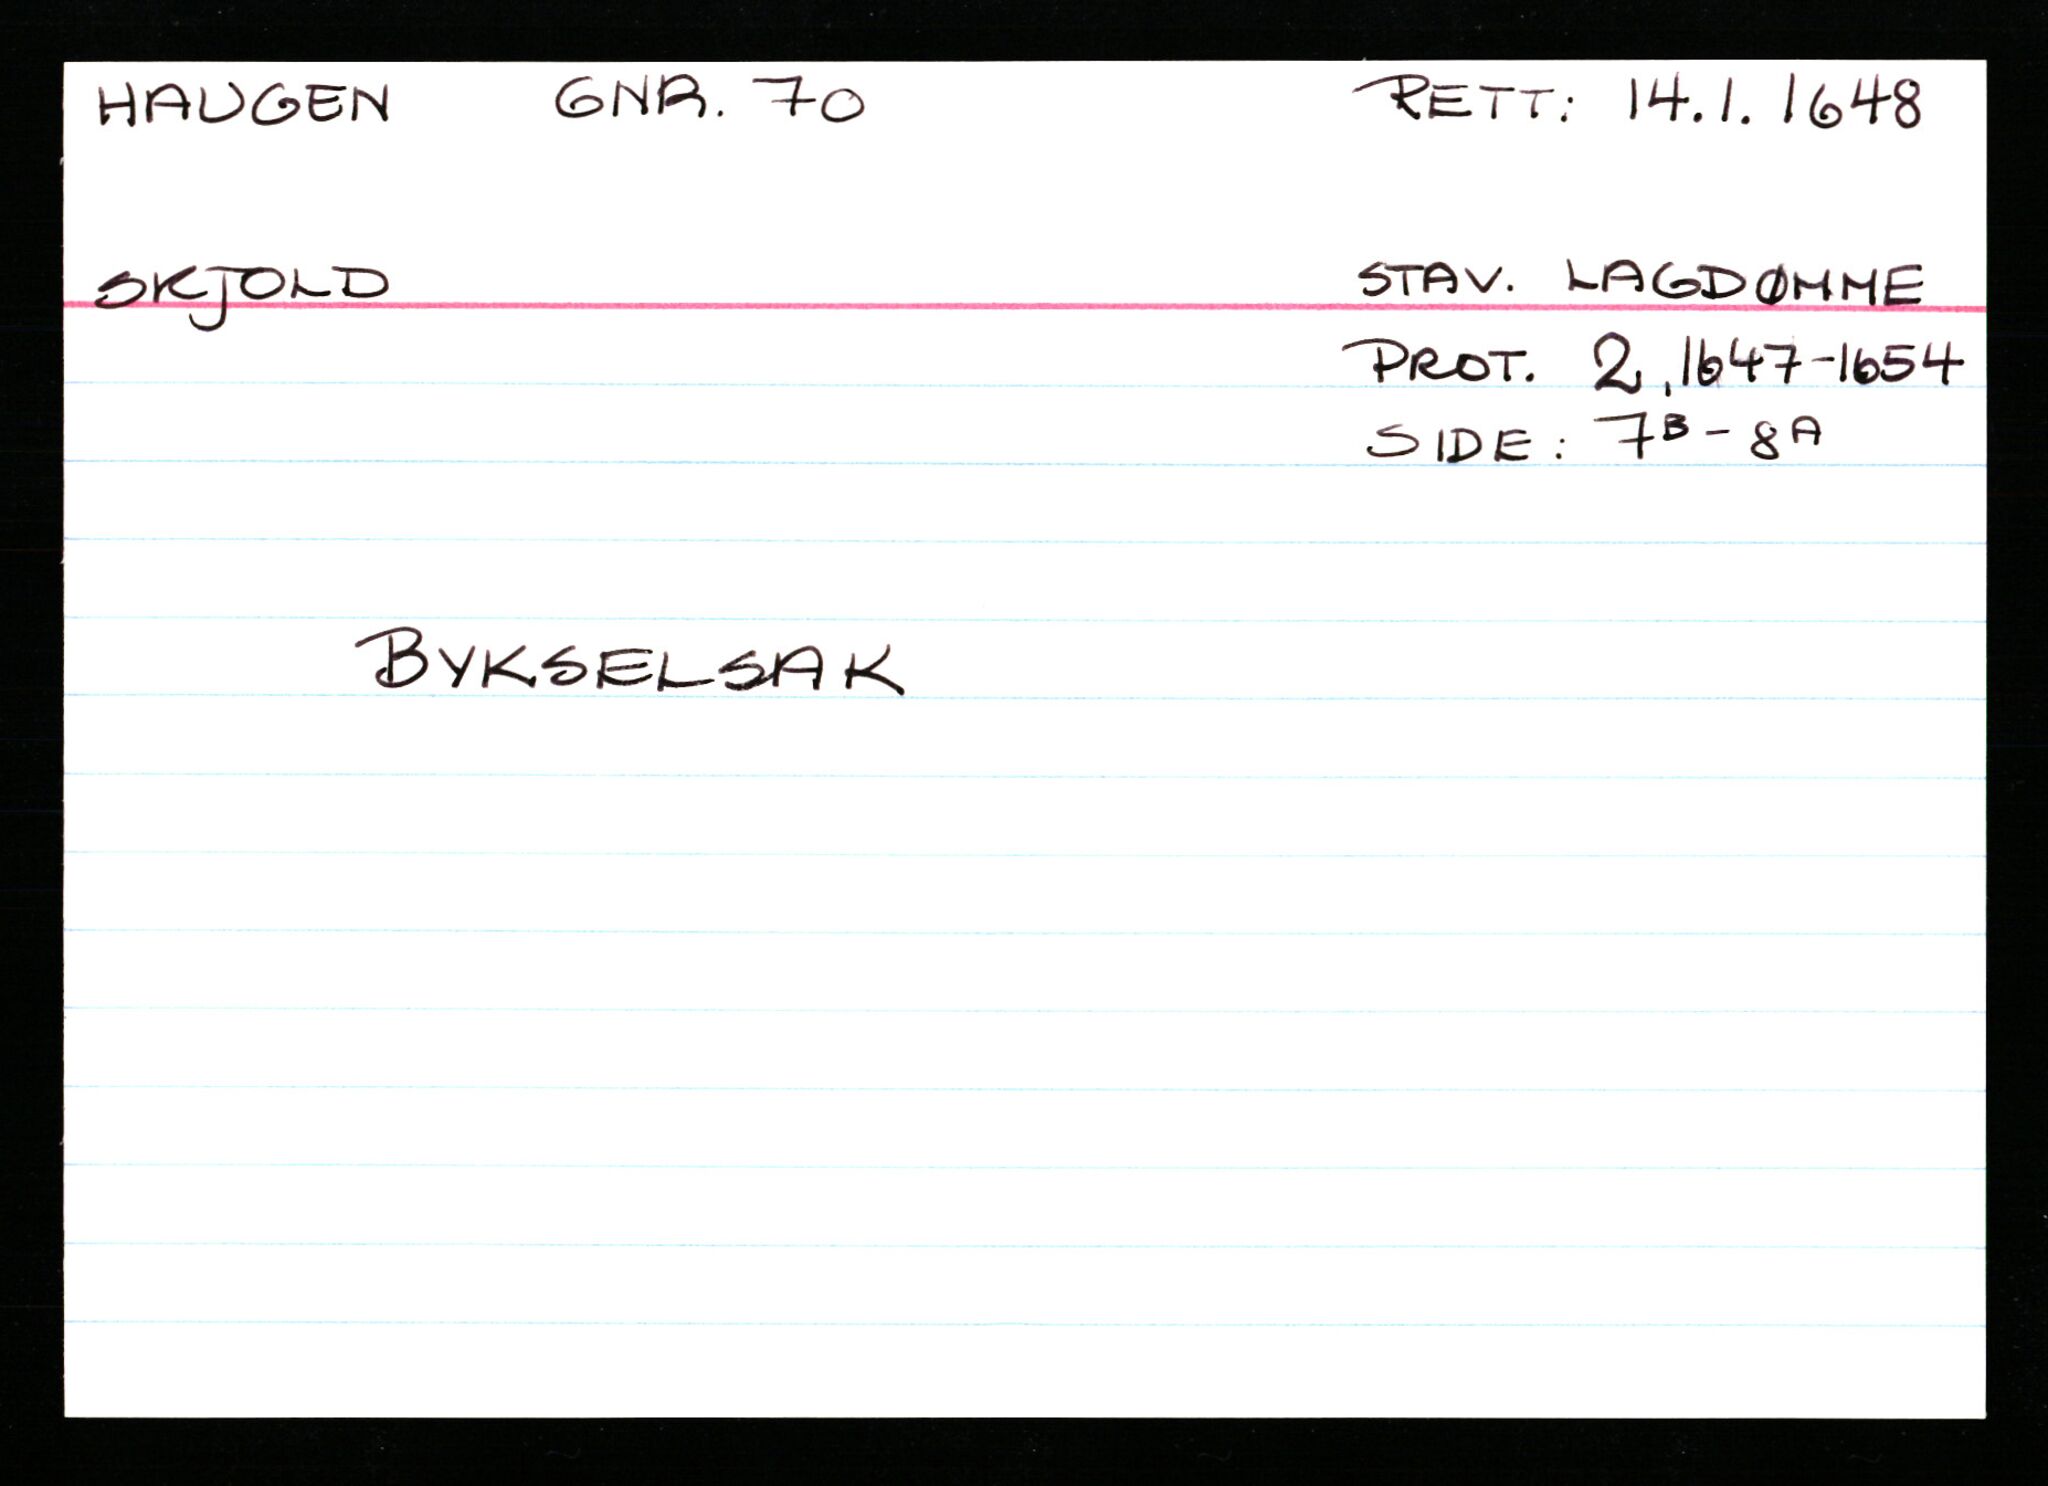 HAUGEN GNR. 70 RETT: 14.1.1648
SKJOLD STAV. LAGDØMME
PROT. 2, 1647-1654
SIDE: 7B-8A
BYKSELSAK